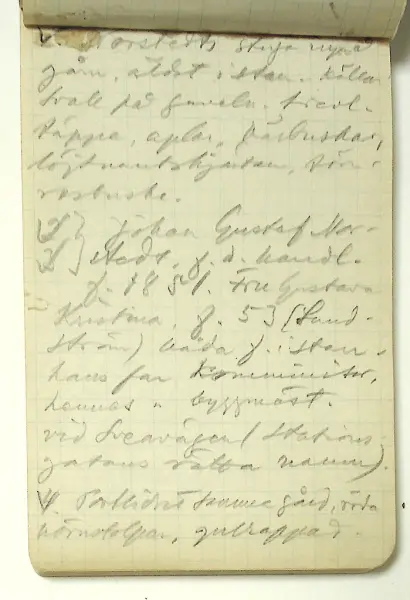 Norstedts stuga nyp
gårn, äldst i stan. Källar
svale på gaveln.
täppa, aplar, bärbuskar,
löjtnantshjärtan, törn-
rosbuske.
Johan Gustaf Nor-
stedt, f. d. handl.
f. 1851. Fru Gustava
Kristina, f. 53 (Sund-
ström) båda f. i stan,
hans far Komminister,
hennes " byggmäst.
vid Sveavägen (Stations-
gatans rätta namn).
4. samma gård, röda
hörnstolpar, gulrappad.